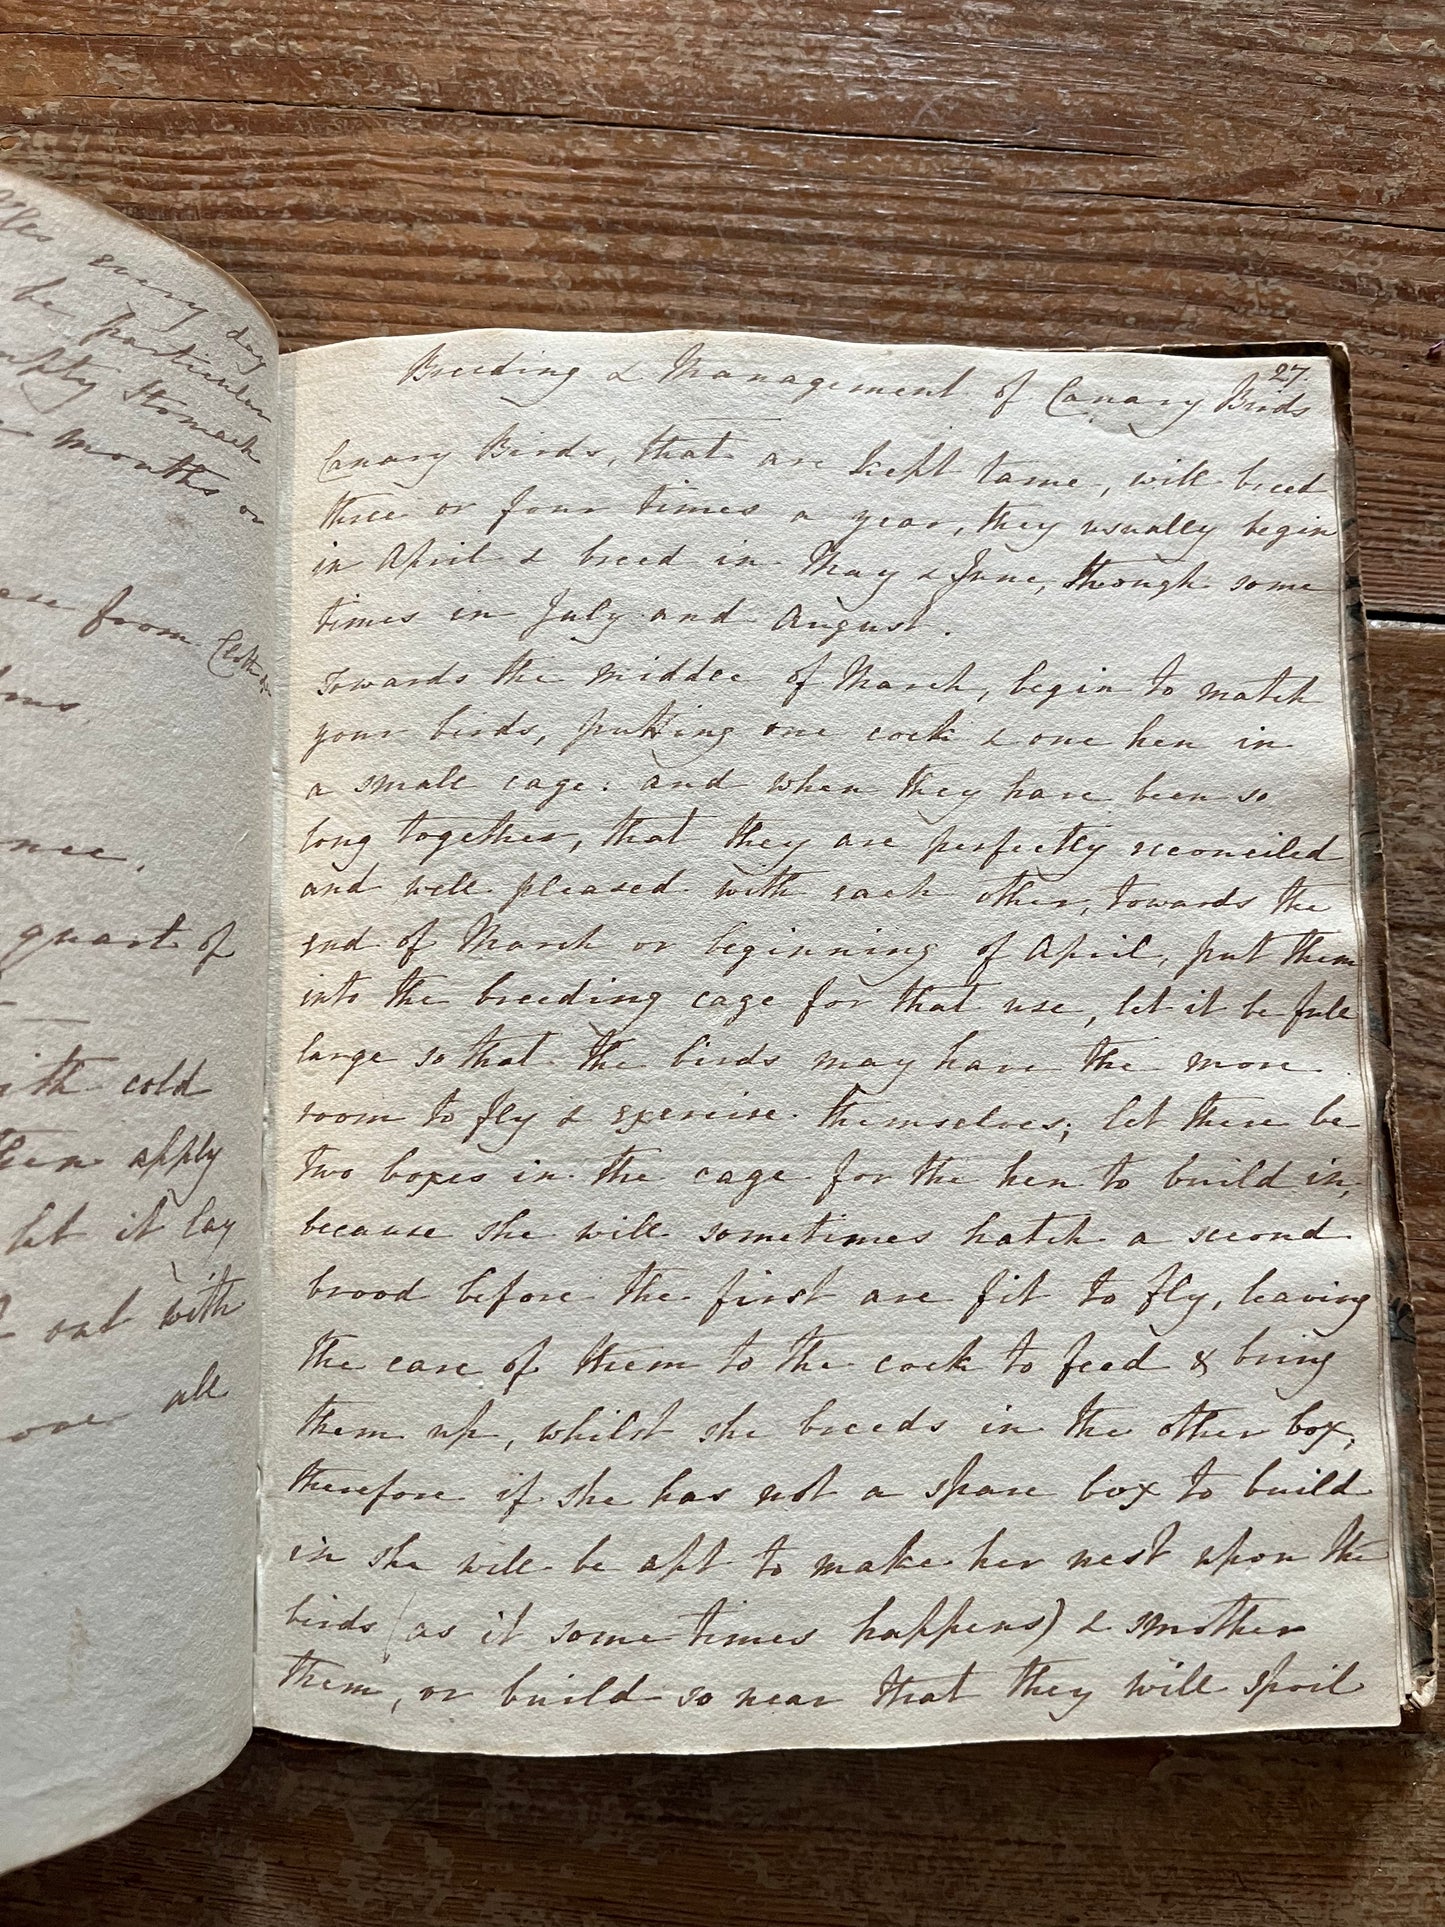 every day
be particular
Stomach
months or
from Cloth
quart of
with cold
then apply
let it lay
out with
all
27.
Breeding & Management of Canary Birds
Canary Birds, that are kept tame, will breed
three or four times a year, they usually begin
in April & breed in May & June, though some
times in July and August.
Towards the middle of March, begin to match
your birds, putting one cock & one hen in
a small cage: and when they have been so
long together, that they are perfectly reconciled
and well pleased with each other, towards the
end of March or beginning of April, put them
into the breeding cage for that use, let it be full
large so that the birds may have the more
room to fly & exercise themselves; let there be
two boxes in the cage for the hen to build in,
because she will sometimes hatch a second
brood before the first are fit to fly, leaving
the care of them to the cock to feed & bring
them up, whilst she breeds in the other box,
therefore if she has not a spare box to build
in she will be apt to make her nest upon the
birds (as it some times happens) & smother
them, or build so near that they will spoil